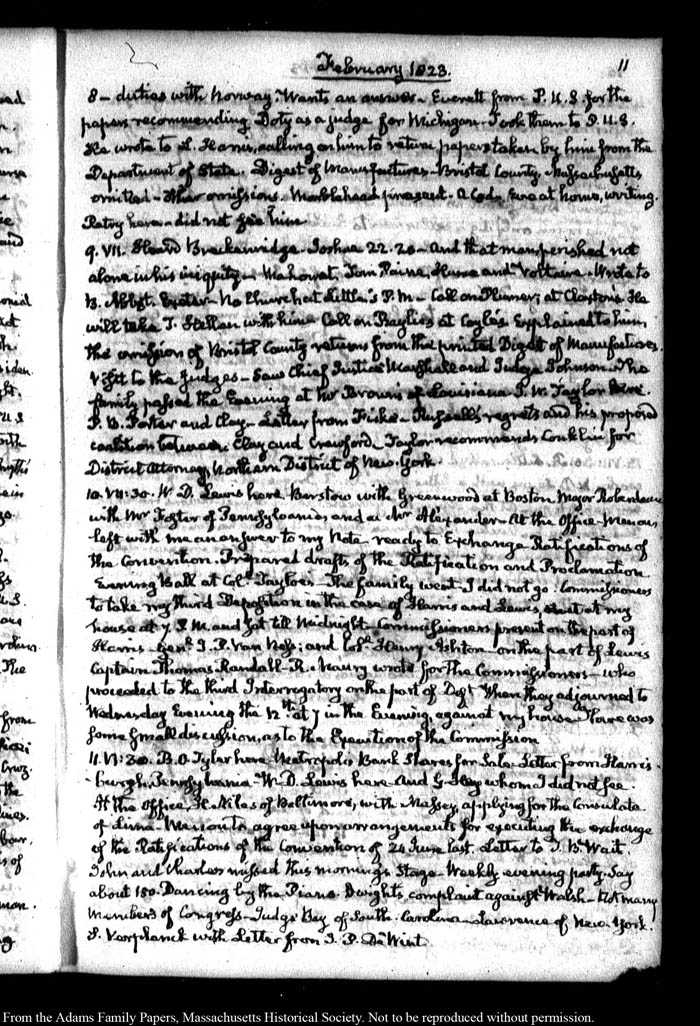 February 1823.
11
8 - duties with Norway. Wants an answer - Everett from P.U.S for the
papers recommending Doty as a judge for Michigan - Took them to P.U.S.
He wrote to calling on him to return papers taken by him from the
Department of State. Digest of Manufactures - Bristol County - Massachusetts,
omitted - Other omissions. Marblehead present. Eve at home, writing.
Petry here - did not see him
9. VII. Heard Breckenridge - Joshua 22. 20 - And that man perished not
alone in his iniquity - Mahomet, Tom Paine, Hume and Voltaire - Wrote to
B. Abbot. Exeter - No Church at Little's P.M. - Call on Plumer, at Claxton's He
will take T. Hellen with him - Call on Baylies at Coyle's Explained to him,
the omission of Bristol County returns from the printed Digest of Manufactures
Visit to the Judges - Saw Chief Justice Marshall and Judge Johnson - The
family passed the Evening at Mr Brown's of Louisiana J. W. Taylor here.
P. B. Porter and Clay - Letter from Fisk - Russell's regrets and his proposed
coalition between Clay and Crawford - Taylor recommends Conklin for
District Attorney, Northern District of New-York.
10. VII:30. W. D. Lewis here Barstow with Greenwood at Boston, Major Roberdeau
with Mr Foster of Pennsylvania, and a Mr Alexander - At the Office - Menou,
left with me an answer to my Note - ready to Exchange Ratifications of
the Convention. Prepared drafts of the Ratification and Proclamation
Evening Ball at Coll. Tayloe's - The family went - I did not go. Commissioners
to take my third Deposition in the case of Harris and Lewis, met at my
house at 7. P.M. and sat till Midnight - Commissioners present on the part of
Harris - Genl. J. P. Van Ness; and Coll. Henry Ashton - on the part of Lewis
Captain Thomas Randall - R. Maury wrote for the Commissioners - who
proceeded to the third Interrogatory on the part of Deft When they adjourned to
Wednesday Evening the 12th. at 7 in the Evening, again at my house - There was
some small discussion, as to the Execution of the Commission
11. VI:30. B. O. Tyler here Metropolis Bank Shares for Sale. Letter from Harris-
-burgh Pennsylvania - W. D. Lewis here. And G. Hay whom I did not see.
At the Office, H. Niles of Baltimore, with Massey, applying for the Consulate
of Lima - Menou to agree upon arrangements for executing the exchange
of the Ratifications of the Convention of 24 June last. Letter to T. B. Wait
John and Charles missed this morning's Stage - Weekly evening party - Say
about 150. Dancing by the Piano Dwight's complaint against Walsh - Not many
Members of Congress - Judge Bay of South-Carolina - Lawrence of New-York.
Verplanck with Letter from J. P. De Wint
From the Adams Family Papers, Massachusetts Historical Society. Not to be reproduced without permission.